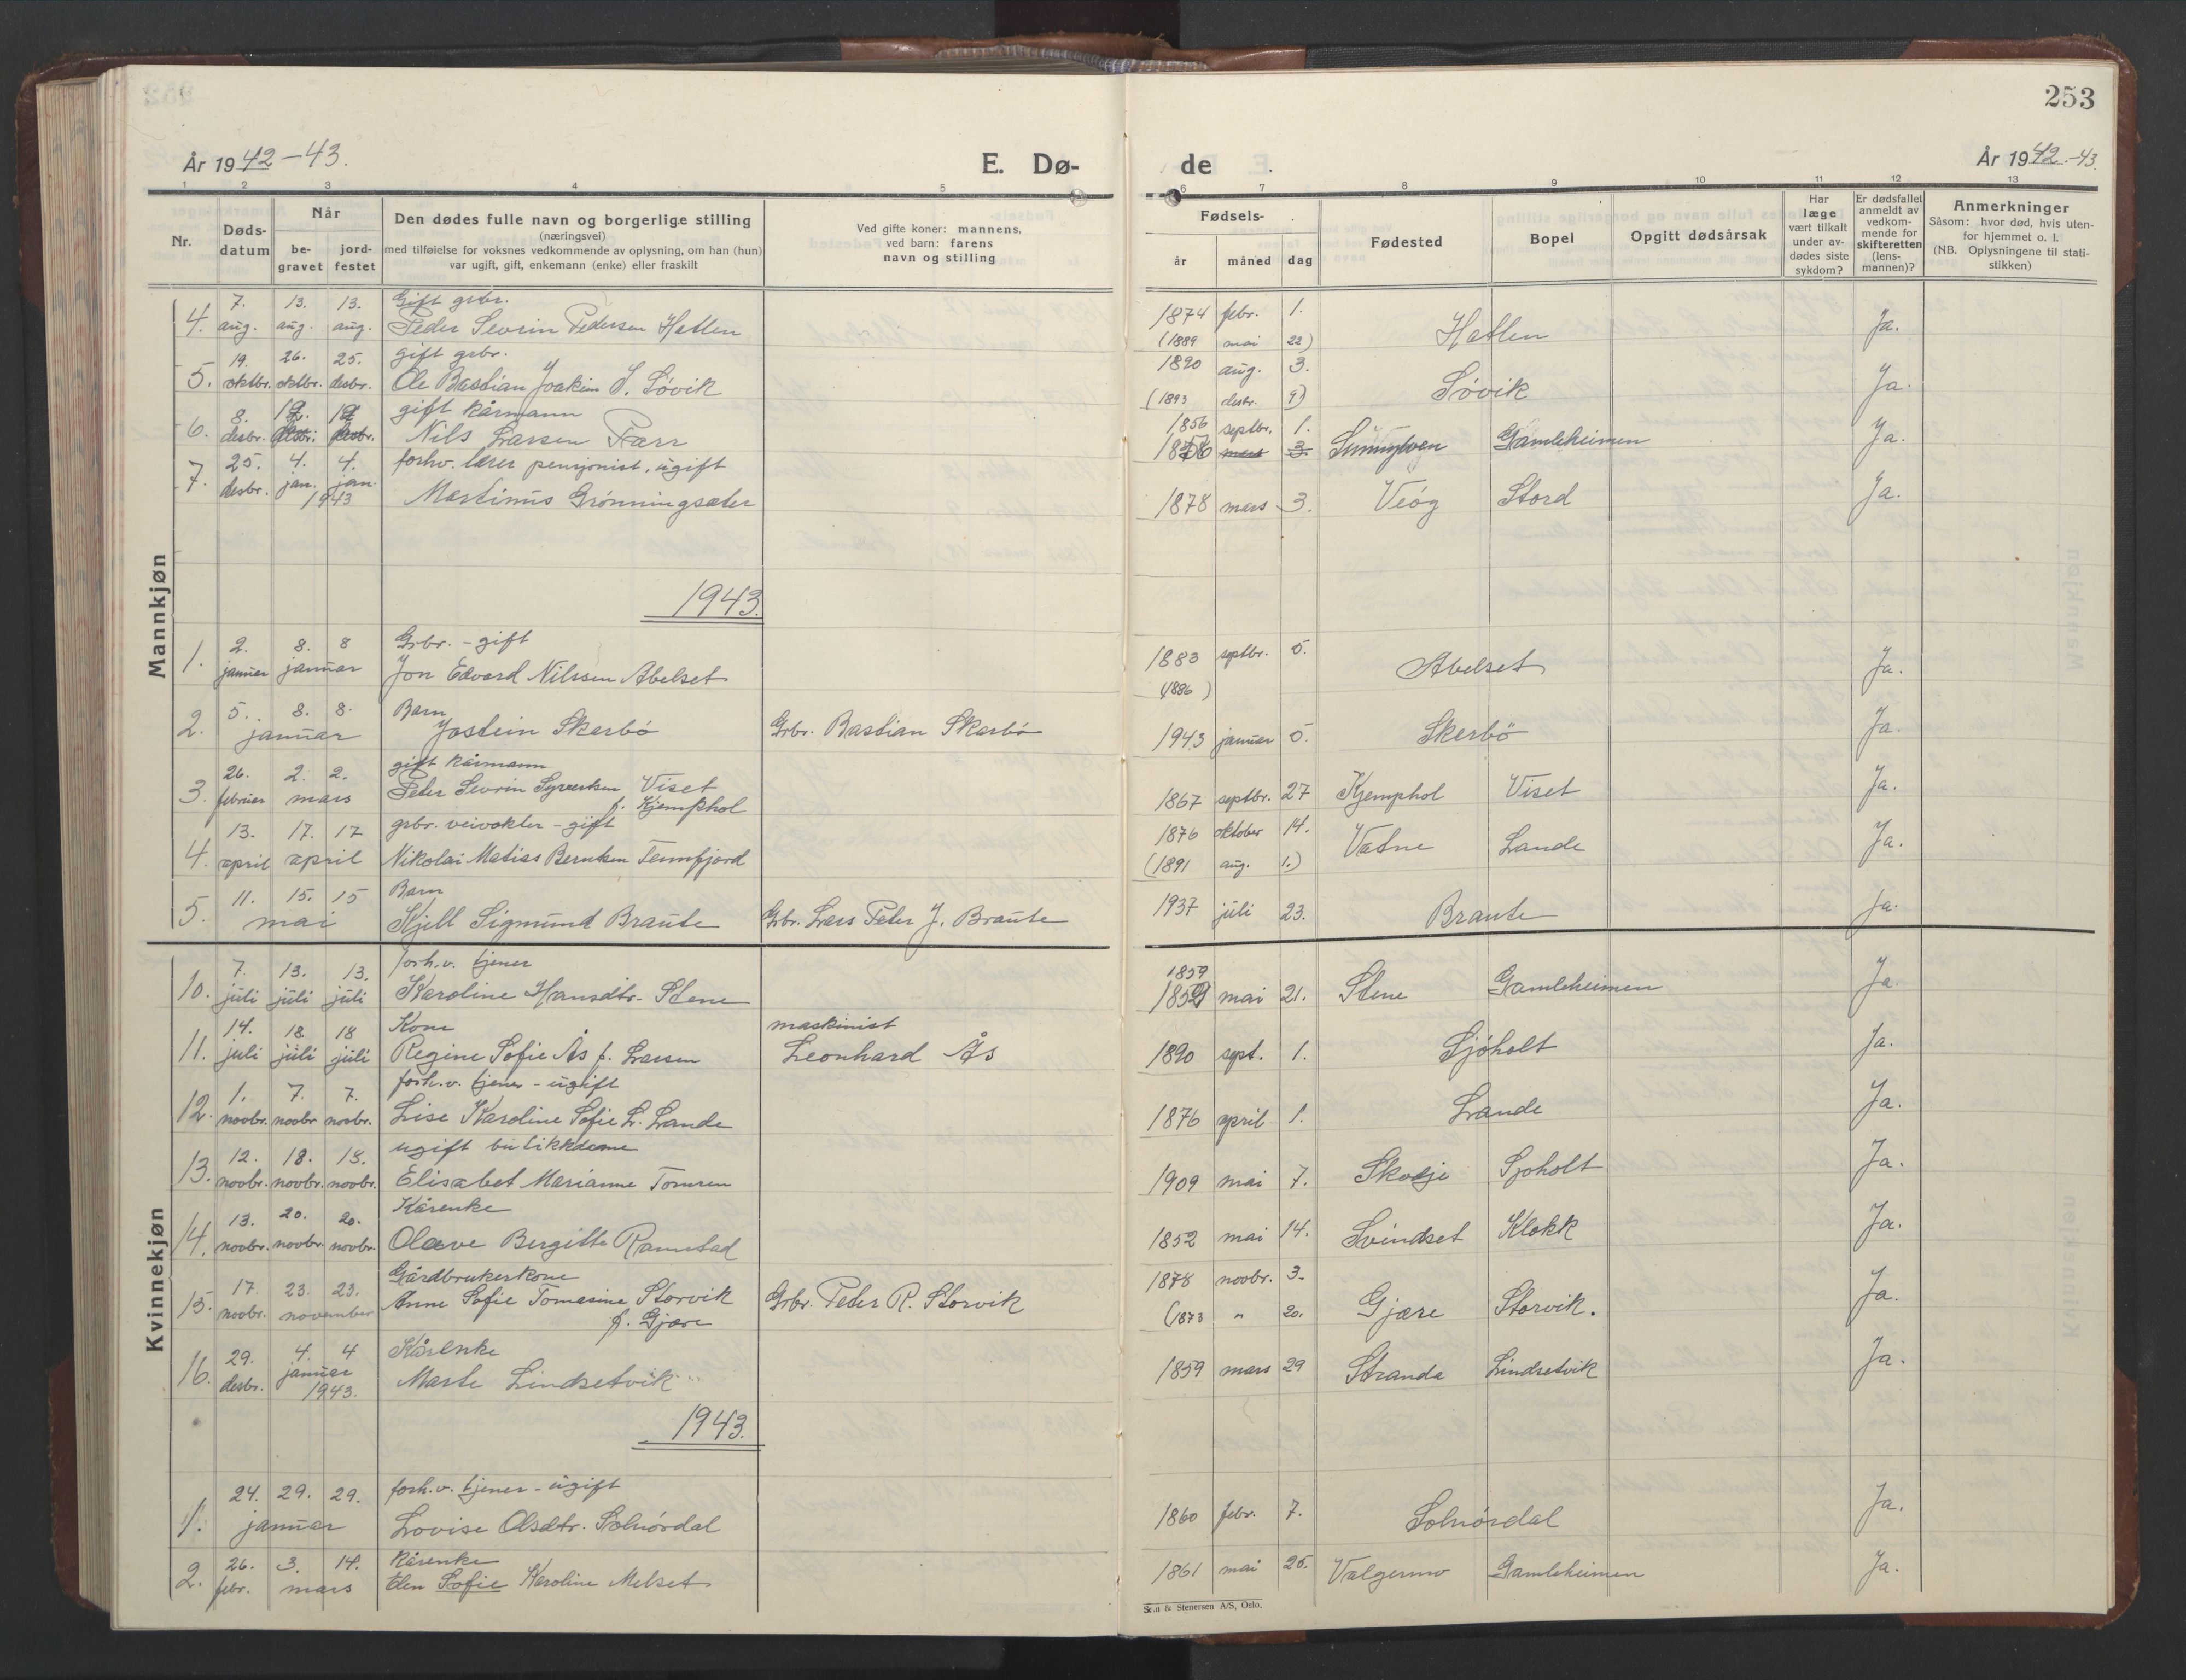 253
År 1942-43.
E. Dø-
de
År 1942-43.
1 2 3 4 5 6 7 8 9 10 11 12 13
Nr.
Døds-
datum
Når
be-
gravet
jord-
festet
Den dødes fulle navn og borgerlige stilling
(næringsvei)
med tilføielse for voksnes vedkommende av oplysning, om han (hun)
var ugift, gift, enkemann (enke) eller fraskilt
Ved gifte koner: mannens,
ved barn: farens
navn og stilling
Fødsels-
år måned dag
Fødested
Bopel
Opgitt dødsårsak
Har
læge
vært tilkalt
under av-
dødes siste
sykdom?
Er dødsfallet
anmeldt av
vedkom-
mende for
skifteretten
(lens-
mannen)?
Anmerkninger
Såsom: hvor død, hvis uten-
for hjemmet o. l.
(NB. Oplysningene til stati-
stikken)
Mannkjøn
7. 13. 13. Gift grbr. 1874 febr. 1.
4. aug. aug. aug. Peder Sevrin Pedersen Hatlen (1889 mai 22) Hatlen Ja.
19. 26. 25. gift grbr. 1890 aug. 3.
5. oktbr. oktbr. desbr. Ole Bastian Joakim S. Søvik (1893 desbr. 9.) Søvik Ja.
8. gift kårmann 1856 septbr. 1.
6. desbr. desbr. desbr. Nils Larsen Farr mars 3. Sunnylven Gamleheimen Ja.
25. 4. 4. forhv. lærer pensjonist, ugift
7. desbr. jan. jan. 1943 Martinus Grønningsæter 1878 mars 3. Veøy Stord Ja.
1943.
2. 8. 8 Grbr. - gift 1883 septbr. 5.
1. januar januar Jon Edvard Nilssen Abelset (1886 ) Abelset Ja.
5. 8. 8. Barn
2. januar Jostein Skarbø Grbr. Bastian Skarbø 1943 januar 5. Skarbø Ja.
26. 2. 2. gift kårmann
3. februar mars Peter Sevrin Syvertsen Viset 1867 septbr. 27 Kjemphol Viset Ja.
f. Kjemphol
13. 17. 17 grbr. veivokter - gift 1876 oktober 14.
4. april april Nikolai Matias Berntsen Tennfjord (1891 aug. 1.) Vatne Lande Ja.
11. 15. 15 Barn
5. mai Kjell Sigmund Braute Grbr. Lars Peter J. Braute 1937 juli 23. Braute Ja.
Kvinnekjøn
7. 13. 13. forh.v. tjener 1859
10. juli juli juli Karoline Hansdtr. Stene 1859 mai 21. Stene Gamleheimen Ja.
14. 18 18 Kone maskinist
11. juli juli juli Regine Sofie Ås f. Larsen Leonhard Ås 1890 sept. 1. Sjøholt Ja.
1. 7. 7. forh.v. tjener - ugift
12. novbr. novbr novbr. Lise Karoline Sofie L. Lande 1876 april 1. Lande Ja.
12. 18. 18. ugift butikkdame
13. novbr. novbr. novbr. Elisabet Marianne Tomren 1909 mai 7. Skodje Sjøholt Ja.
13. 20. 20. Kårenke
14. novbr. novbr. novbr. Olave Bergitte Ramstad 1852 mai 14. Svindset Klokk Ja.
17. 23. 23. Gårdbrukerkone 1878 novbr. 3.
15. novbr. november Anne Sofie Tomasine Storvik Grbr. Peder R. Storvik (1873 " 20. Gjære Storvik. Ja.
f. Gjære
29. 4. 4 Kårenke
16. desbr. januar 1943. Marte Lindsetvik 1859 mars 29 Stranda Lindsetvik Ja.
1943.
24. 29. 29. forh.v. tjener - ugift
1. januar Lovise Olsdtr. Solnørdal 1860 febr. 7. Solnørdal Ja.
26. 3. 14. kårenke
2. febr. mars Elen Sofie Karoline Melset 1861 mai 25. Valgermo Gamleheimen Ja.
Sem & Stenersen A/S, Oslo.